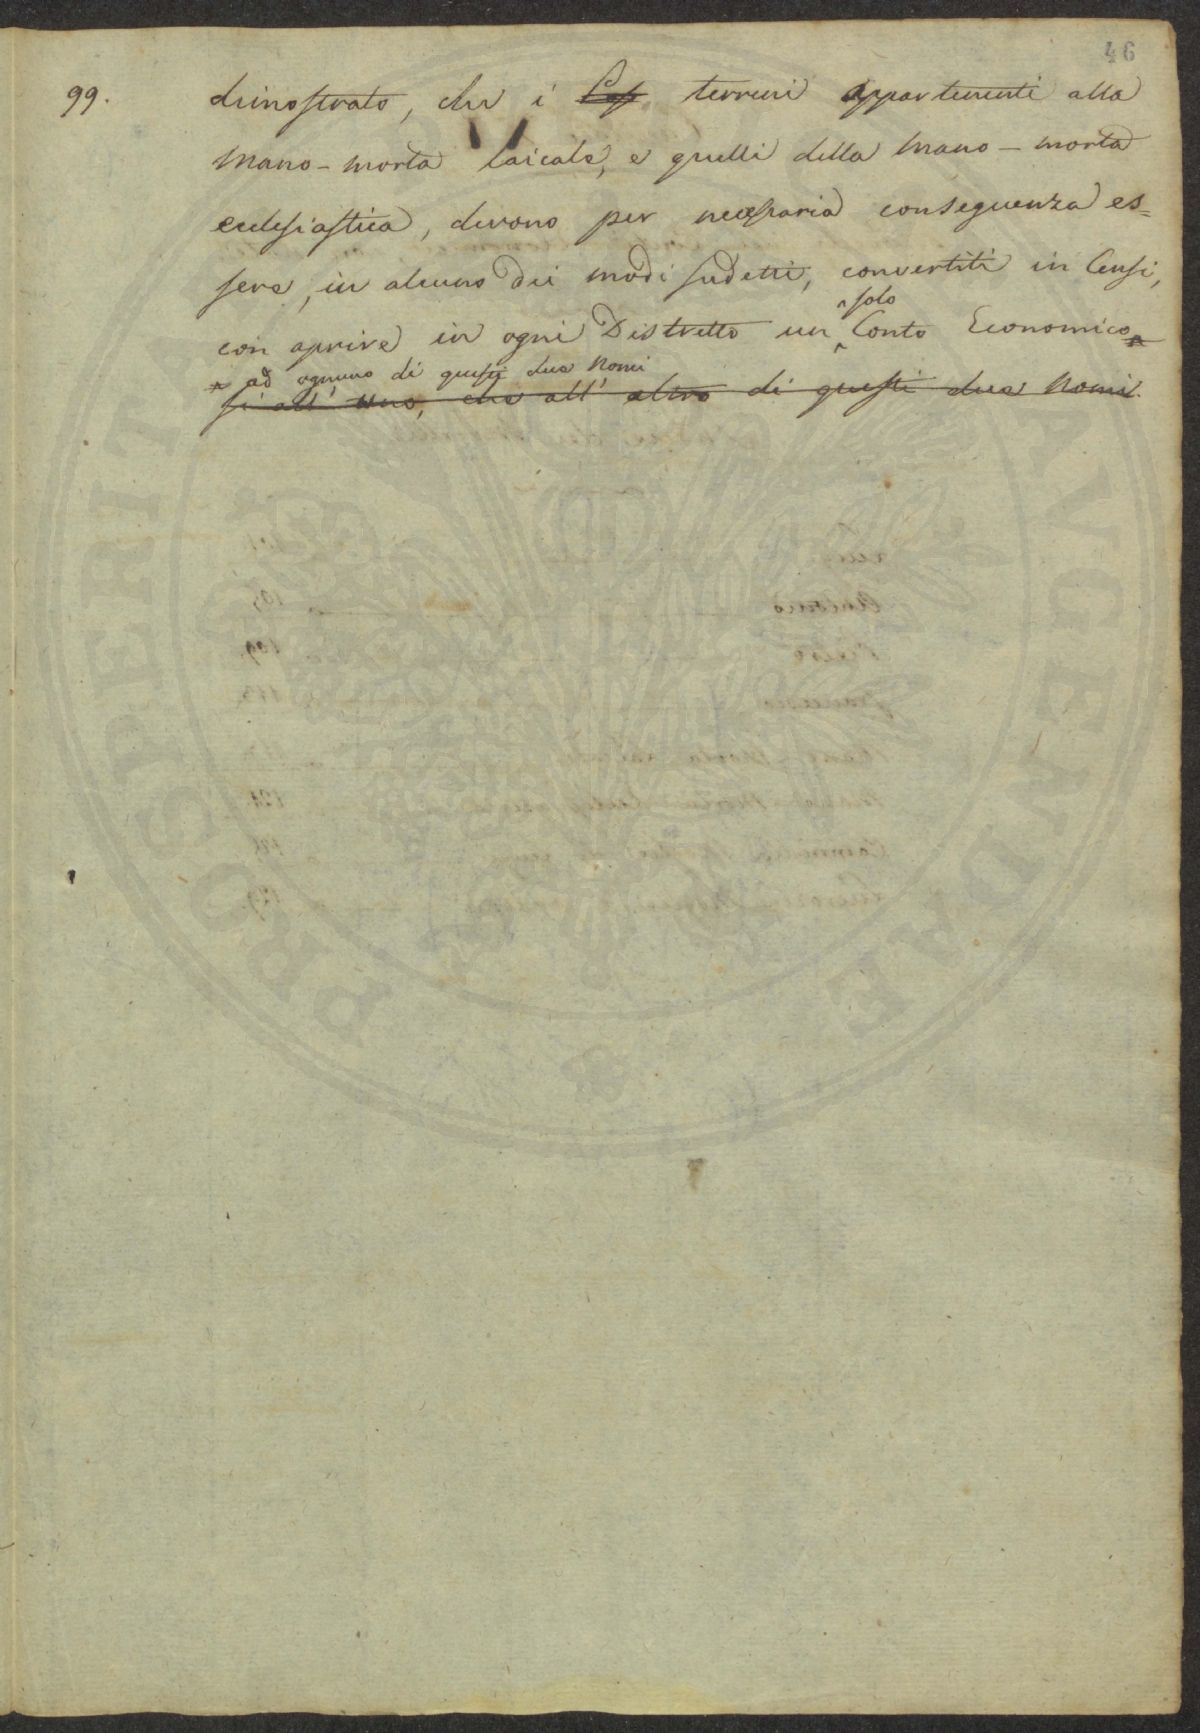 46
99.
dimostrato, che i Pos terreni appartenenti alla
Mano-morta laicale, e quelli della Mano-morta
ecclesiastica, devono per necessaria conseguenza es=
sere, in alcuno dei modi sudetti, convertiti in Censi,
con aprire in ogni Distretto un ^solo Conto Economico
ad ognuno di questi due Nomi
sì all' uno, che all' altro di questi due Nomi.
PROSPERITATI AVGENDAE